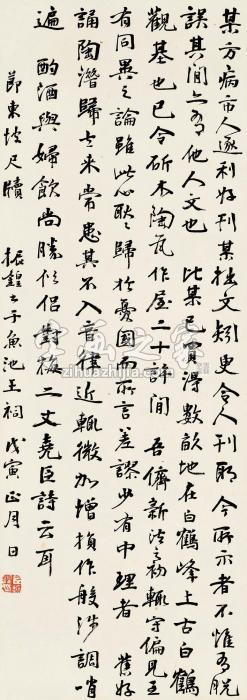 某方病市人逐利好刊某拙文矧更令人刊耶今所示者不惟有脱
誤其間亦有他人文也 比某已買得數畝地在白鶴峰上古白鶴
觀基也已令斫木陶瓦作屋二十許間 吾儕新法之初輒守偏見至
有同異之論雖此心耿耿歸於憂國而所言差謬少有中理者 舊好
誦陶潛歸去来常患其不入音律近輒微加增損作般涉調哨
遍 酌酒與婦飲尚勝俗侶對梅二丈堯臣詩云耳
節東坡尺牘 振鍠書于魚池王祠 戊寅正月 日